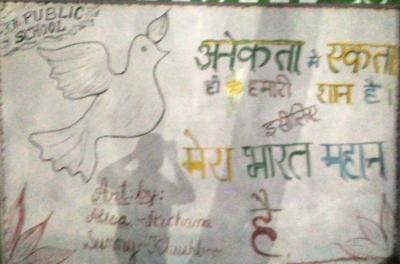 PUBLIC
SCHOOL
अनेकता में एकता
ही हमारी शान है।
इसीलिए
मेरा भारत महान
है.
Art by: